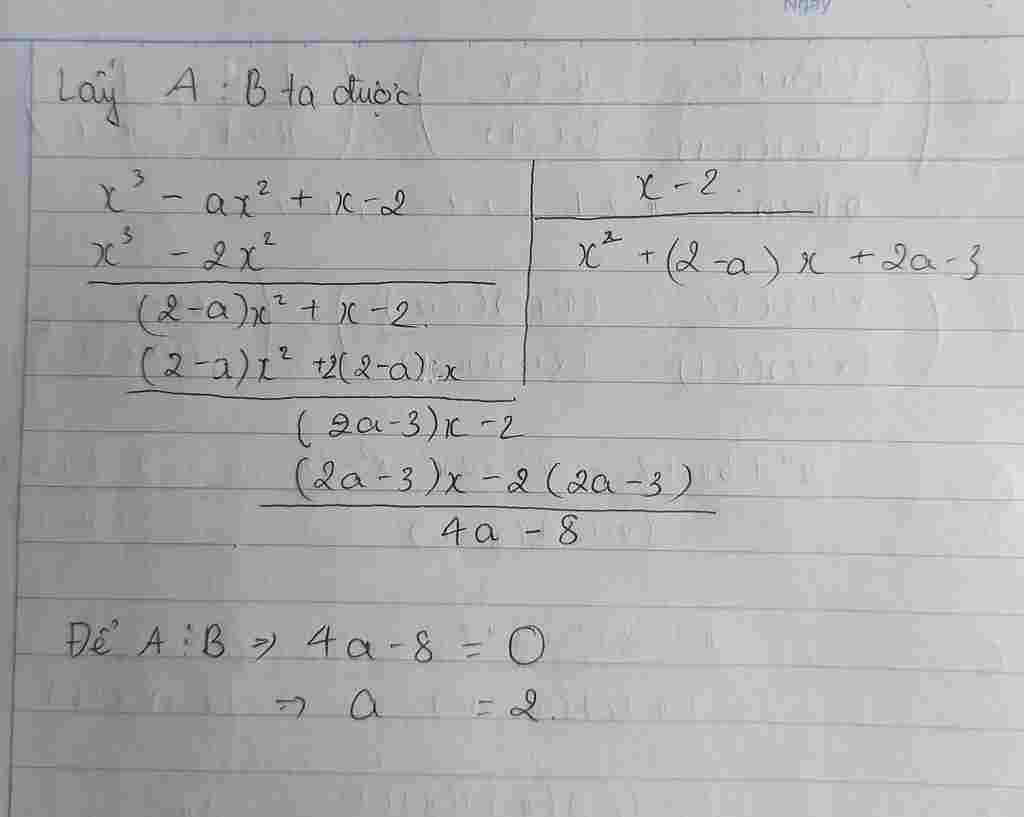 Ngày
Lấy A : B ta được:
x³ - ax² + x - 2
x - 2.
x³ - 2x²
x² + (2 - a) x + 2a - 3
(2 - a)x² + x - 2.
(2 - a)x² +2(2 - a).x
(2a - 3)x - 2
(2a - 3)x - 2 (2a - 3)
4a - 8
Để A ⋮ B => 4a - 8 = 0
=> a = 2.